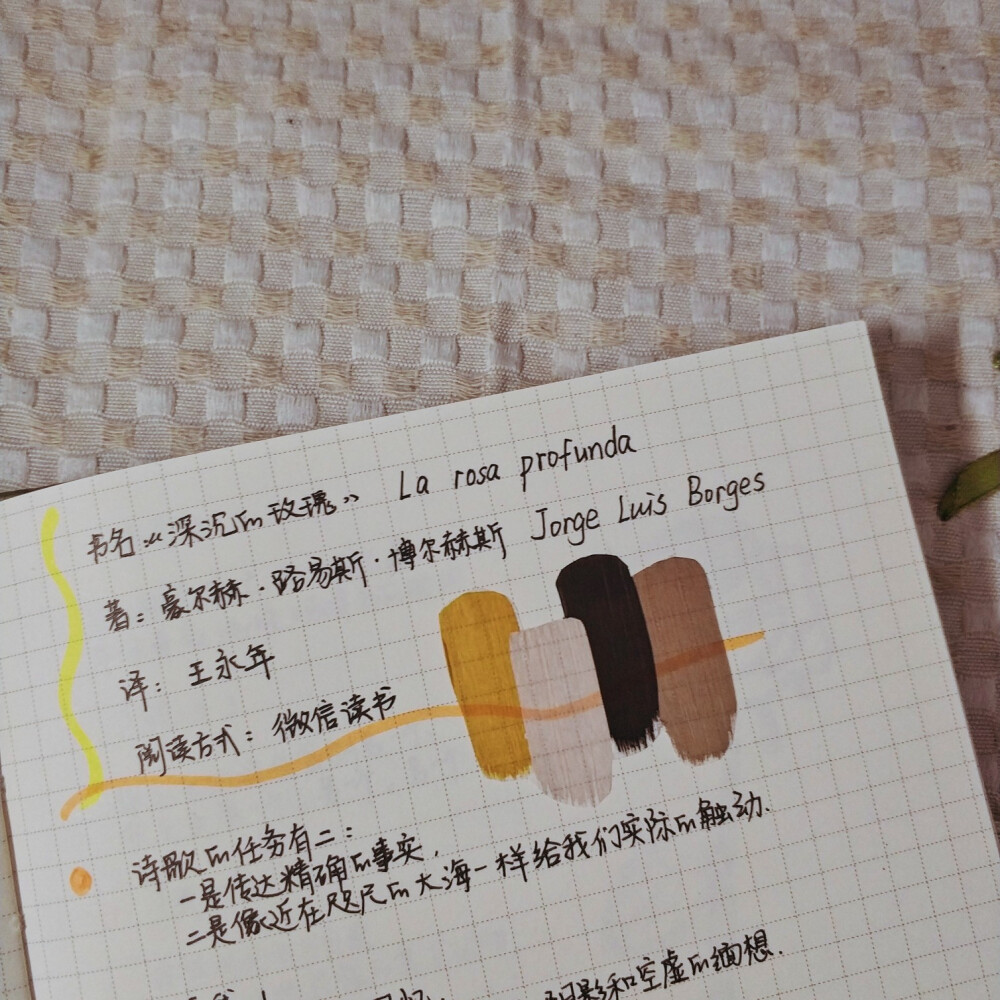 书名《深沉的玫瑰》 La rosa profunda
著：豪尔赫·路易斯·博尔赫斯 Jorge Luis Borges
译：王永年
阅读方式：微信读书
诗歌的任务有二：
一是传达精确的事实，
二是像近在咫尺的大海一样给我们实际的触动.
阴影和空虚的缅想.